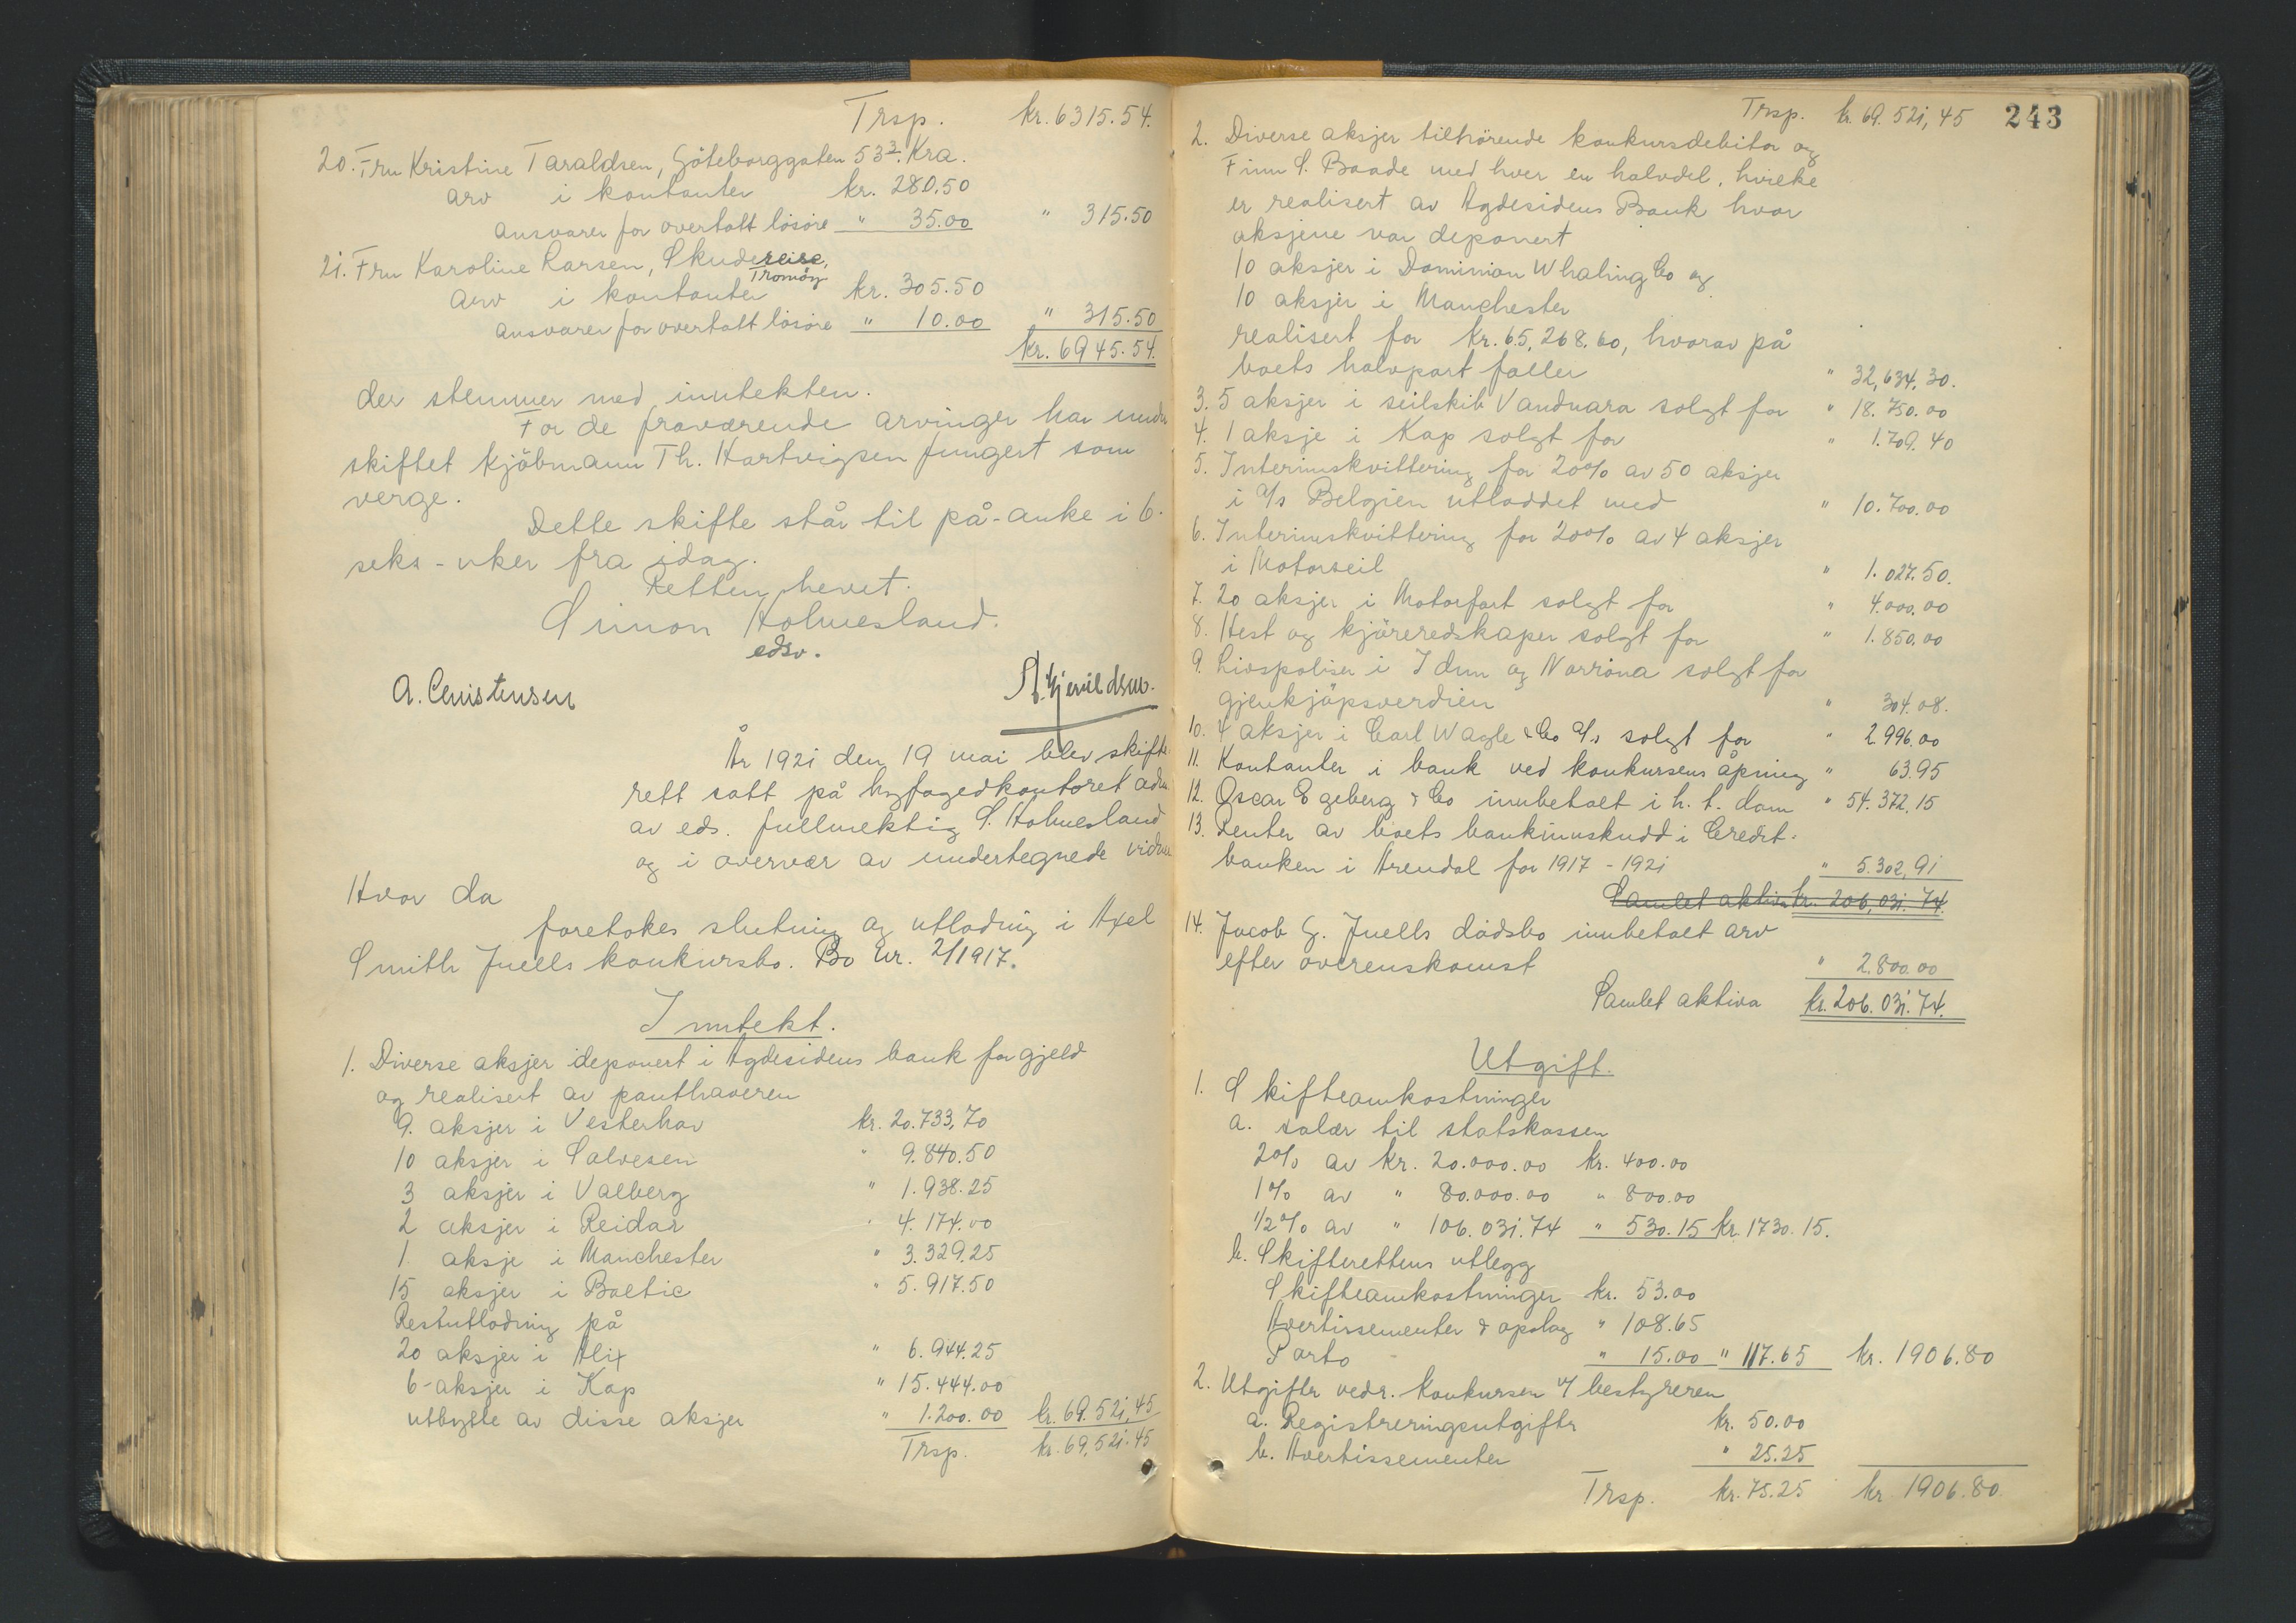 Trsp. kr. 6315.54.
20. Fru Kristine Taraldsen, Göteborggaten 53³. Kra.
arv i kontanter kr. 280.50
ansvarer for overtatt lösöre " 35.00 " 315.50
21. Fru Karoline Larsen, Skudereise,
Tromöy
arv i kontanter kr. 305.50
ansvarer for overtatt lösöre " 10.00 " 315.50
kr. 6945.54.
der stemmer med inntekten.
For de fraværende arvinger har under
skiftet kjöbmann Th. Hartvigsen fungert som
verge.
Dette skifte står til på-anke i 6-
seks-uker fra idag.
Retten hevet.
Simon Holmesland.
edsv.
A. Christensen
År 1921 den 19 mai blev skifte
rett satt på byfogedkontoret adm.
av eds. fullmektig S. Holmesland
og i overvær av undertegnede vidner
Hvor da
foretokes slutning og utlodning i Axel
Smith Juells konkursbo. Bo nr. 2/1917.
Inntekt.
1. Diverse aksjer deponert i Agdesidens bank for gjeld
og realisert av panthaveren
9. aksjer i Vesterhav kr. 20.733,70
10 aksjer i Salvesen " 9.840.50
3 aksjer i Valberg " 1.938.25
2 aksjer i Reidar " 4.174.00
1 aksje i Manchester " 3.329.25
15 aksjer i Baltic " 5.917.50
Restutlodning på
20 aksjer i Alix " 6.944.25
6-aksjer i Kap " 15.444.00
utbytte av disse aksjer " 1.200.00 kr. 69.521,45
Trsp. kr. 69,521.45
Trsp. kr. 69.521,45 243
2. Diverse aksjer tilhörende konkursdebitor og
Finn S. Baade med hver en halvdel, hvilke
er realisert av Agdesidens Bank hvor
aksjene var deponert
10 aksjer i Dominion Whaling Co og
10 aksjer i Manchester
realisert for kr. 65,268.60, hvorav på
boets halvpart faller " 32,634.30.
3. 5 aksjer i seilskib Vandnara solgt for " 18.750.00
4. 1 aksje i Kap solgt for " 1.709.40
5. Interimskvittering for 20% av 50 aksjer
i a/s Belgien utloddet med " 10.700.00
6. Interimskvittering for 20% av 4 aksjer
i Motorseil " 1.027.50.
7. 20 aksjer i Motorfart solgt for " 4.000.00
8. Hest og kjöreredskaper solgt for " 1.850.00
9. Livspoliser i Idun og Norröna solgt for
gjenkjöpsverdien " 304.08.
10. 4 aksjer i Carl Wagle & Co A/s solgt for " 2.996.00
11. Kontanter i bank ved konkursens åpning " 63.95
12. Oscar Egeberg & Co innbetalt i h. t. dom " 54.372.15
13. Renter av boets bankinnskudd i Credit-
banken i Arendal for 1917 - 1921 " 5.302,91
Samlet aktiva kr. 206,031.74.
14. Jacob G. Juells dödsbo innbetalt arv
efter overenskomst " 2.800.00
Samlet aktiva kr. 206.031.74.
Utgift.
1. Skifteomkostninger
a. salær til statskassen
2% av kr. 20.000.00 kr. 400.00
1% av " 80.000.00 " 800.00
1/2% av " 106.031.74 " 530.15 kr. 1730.15.
b. Skifterettens utlegg
Skifteomkostninger kr. 53.00
Avertissementer & opslag " 108.65
Porto " 15.00 " 117.65 kr. 1906.80
2. Utgifter vedr. konkursen v/ bestyreren
a. Registreringsutgifter kr. 50.00
b. Avertissementer " 25.25
Trsp. kr. 75.25 kr 1906.80